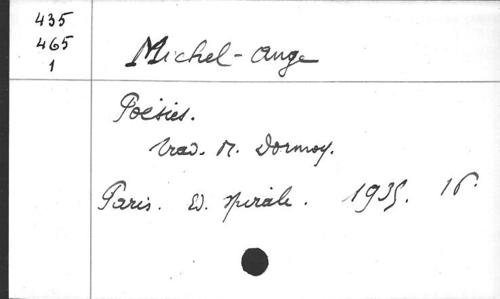 435
465
1
Michel-Ange
Poésies.
trad. M. Dormoy.
Paris. Ed. spirale. 1935. 16°